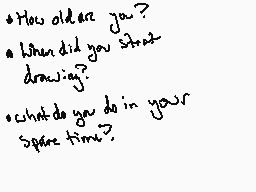 • How old are you?
• When did you strat
drawing?
• what do you do in your
spare time?